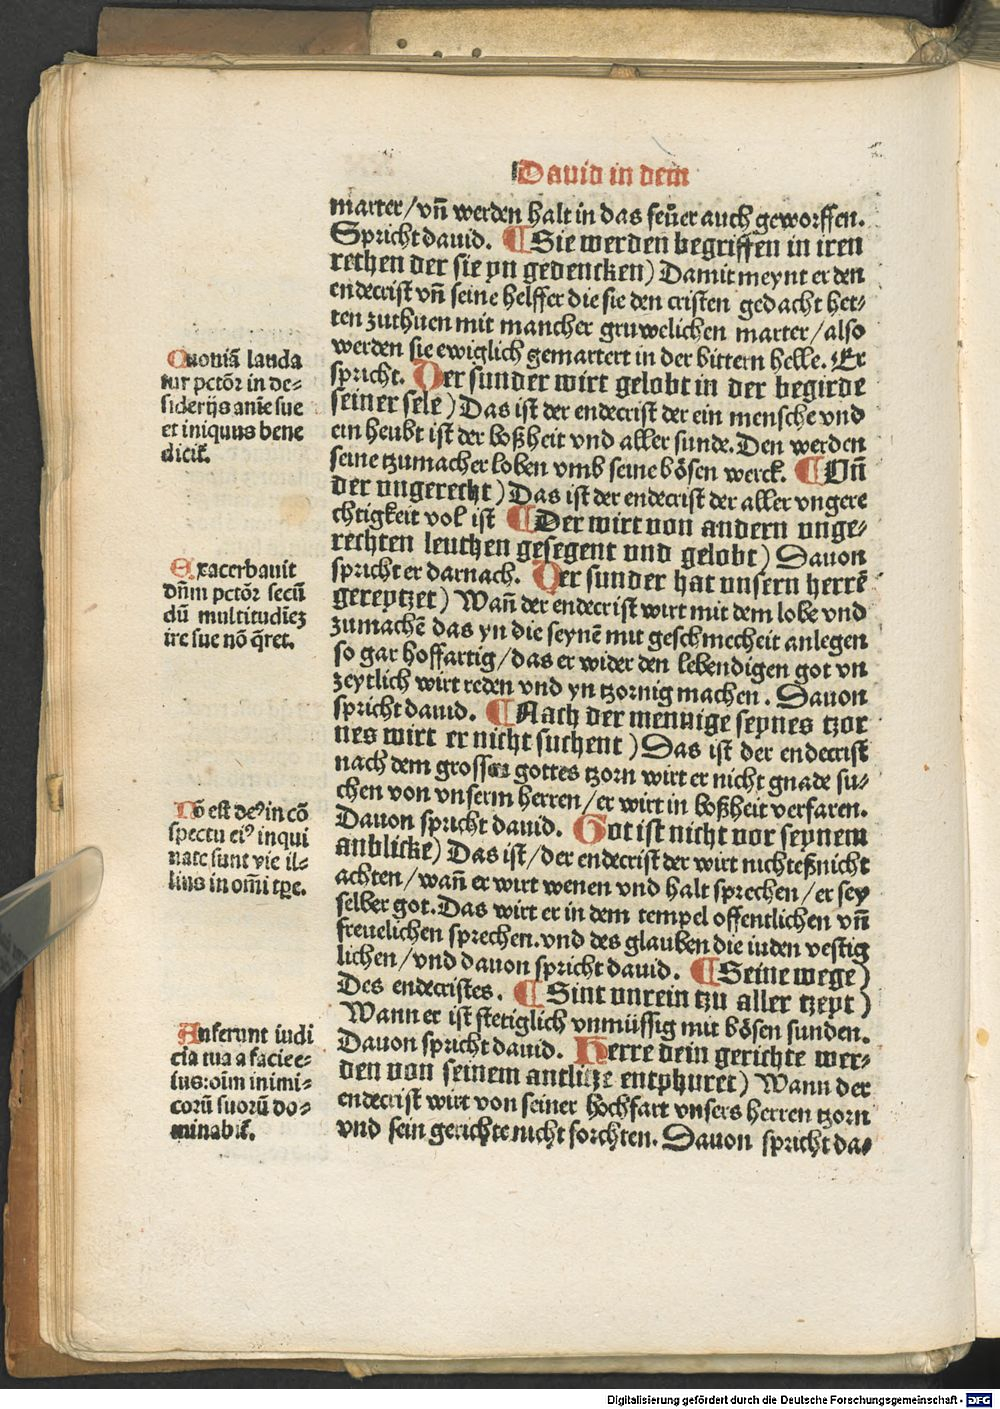 Dauid in dem
marter/vñ werden halt in das feůer auch geworffen.
Spricht dauid. ¶ Sie werden begriffen in iren
rethen der sie yn gedencken) Damit meynt er den
endecrist vñ seine helffer die sie den cristen gedacht het-
ten zuthuen mit mancher gruwelichen marter/also
werden sie ewiglich gemartert in der bittern helle. Er
spricht. Der sunder wirt gelobt in der begirde
seiner sele) Das ist der endecrist der ein mensche vnd
ein heubt ist der boßheit vnd aller sunde. Den werden
seine tzumacher loben vmb seine bősen werck. ¶ Vñ
der vngerecht) Das ist der endecrist der aller vngere
chtigkeit vol ist ¶ Der wirt von andern vnge-
rechten leuthen gesegent vnd gelobt) Dauon
spricht er darnach. Der sunder hat vnsern herrē
gereytzet) Wañ der endecrist wirt mit dem lobe vnd
zumachē das yn die seynē mit geschmecheit anlegen
so gar hoffartig/das er wider den lebendigen got vn
zeytlich wirt reden vnd yn tzornig machen. Dauon
spricht dauid. ¶ Nach der mennige seynes tzor
nes wirt er nicht suchent) Das ist der endecrist
nach dem grossen gottes tzorn wirt er nicht gnade su-
chen von vnserm herren/er wirt in boßheit verfaren.
Dauon spricht dauid. Got ist nicht vor seynem
anblicke) Das ist/der endecrist der wirt nichteßnicht
achten/wañ er wirt wenen vnd halt sprechen/er sey
selber got. Das wirt er in dem tempel offentlichen vñ
freuelichen sprechen. vnd des glauben die iuden vestig
lichen/vnd dauon spricht dauid. ¶ Seine wege)
Des endecristes. ¶ Sint vnrein tzu aller tzeyt)
Wann er ist stetiglich vnmüssig mit bősen sunden.
Dauon spricht dauid. Herre dein gerichte wer-
den von seinem antlitze entphuret) Wann der
endecrist wirt von seiner hochfart vnsers herren tzorn
vnd sein gerichte nicht forchten. Dauon spricht da-
Quoniā lauda
tur pctőr in de-
siderijs anīe sue
et iniquus bene
dicit̃.
Exacerbauit
dñm pctőr secū
dū multitudīez
ire sue nō q̄ret.
Nō est deꝰ in cō
spectu eiꝰ inqui
nate sunt vie il-
lius in om̄i tp̄e.
Auferunt iudi
cia tua a facie e-
ius: oīm inimi-
corū suorū do-
minabit̃.
Digitalisierung gefördert durch die Deutsche Forschungsgemeinschaft - DFG